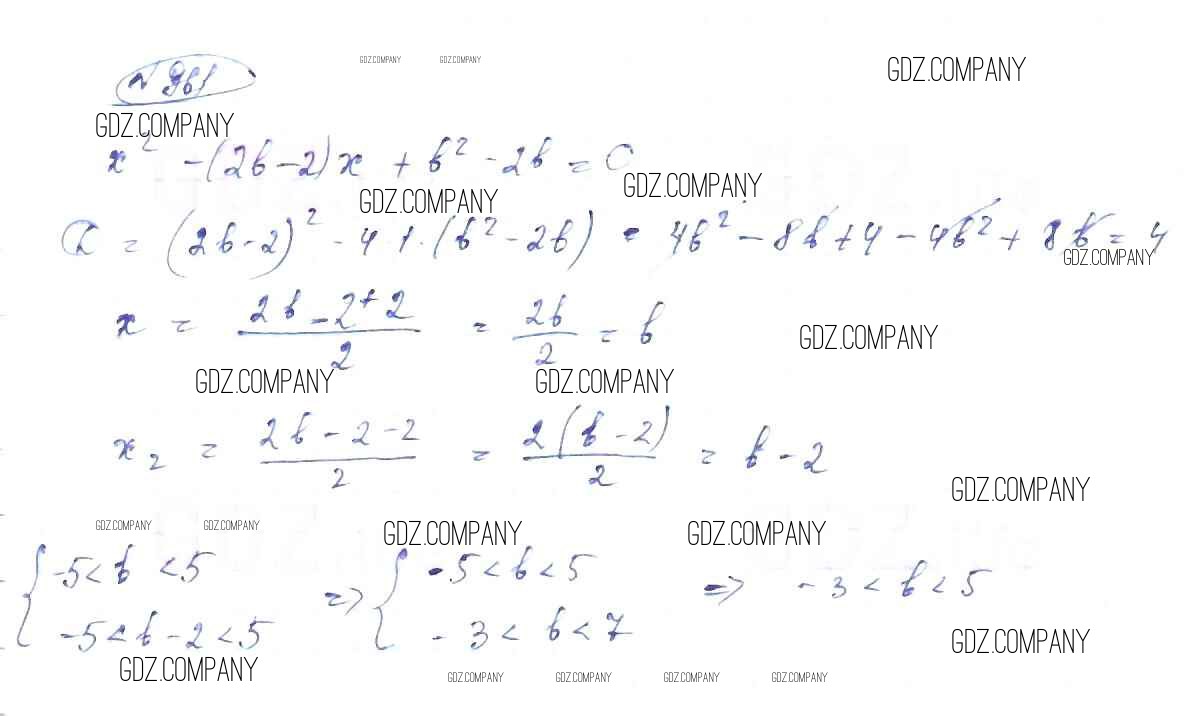 № 961
GDZ.COMPANY GDZ.COMPANY GDZ.COMPANY
GDZ.COMPANY
x² - (2b - 2)x + b² - 2b = 0
GDZ.COMPANY GDZ.COMPANY
D = (2b - 2)² - 4·1·(b² - 2b) = 4b² - 8b + 4 - 4b² + 8b = 4
GDZ.COMPANY
x = (2b - 2 + 2)/2 = 2b/2 = b
GDZ.COMPANY
GDZ.COMPANY GDZ.COMPANY
x₂ = (2b - 2 - 2)/2 = 2(b - 2)/2 = b - 2
GDZ.COMPANY
GDZ.COMPANY GDZ.COMPANY GDZ.COMPANY GDZ.COMPANY
{ -5 < b < 5 => { -5 < b < 5 => -3 < b < 5
-5 < b - 2 < 5 -3 < b < 7
GDZ.COMPANY
GDZ.COMPANY GDZ.COMPANY GDZ.COMPANY GDZ.COMPANY GDZ.COMPANY